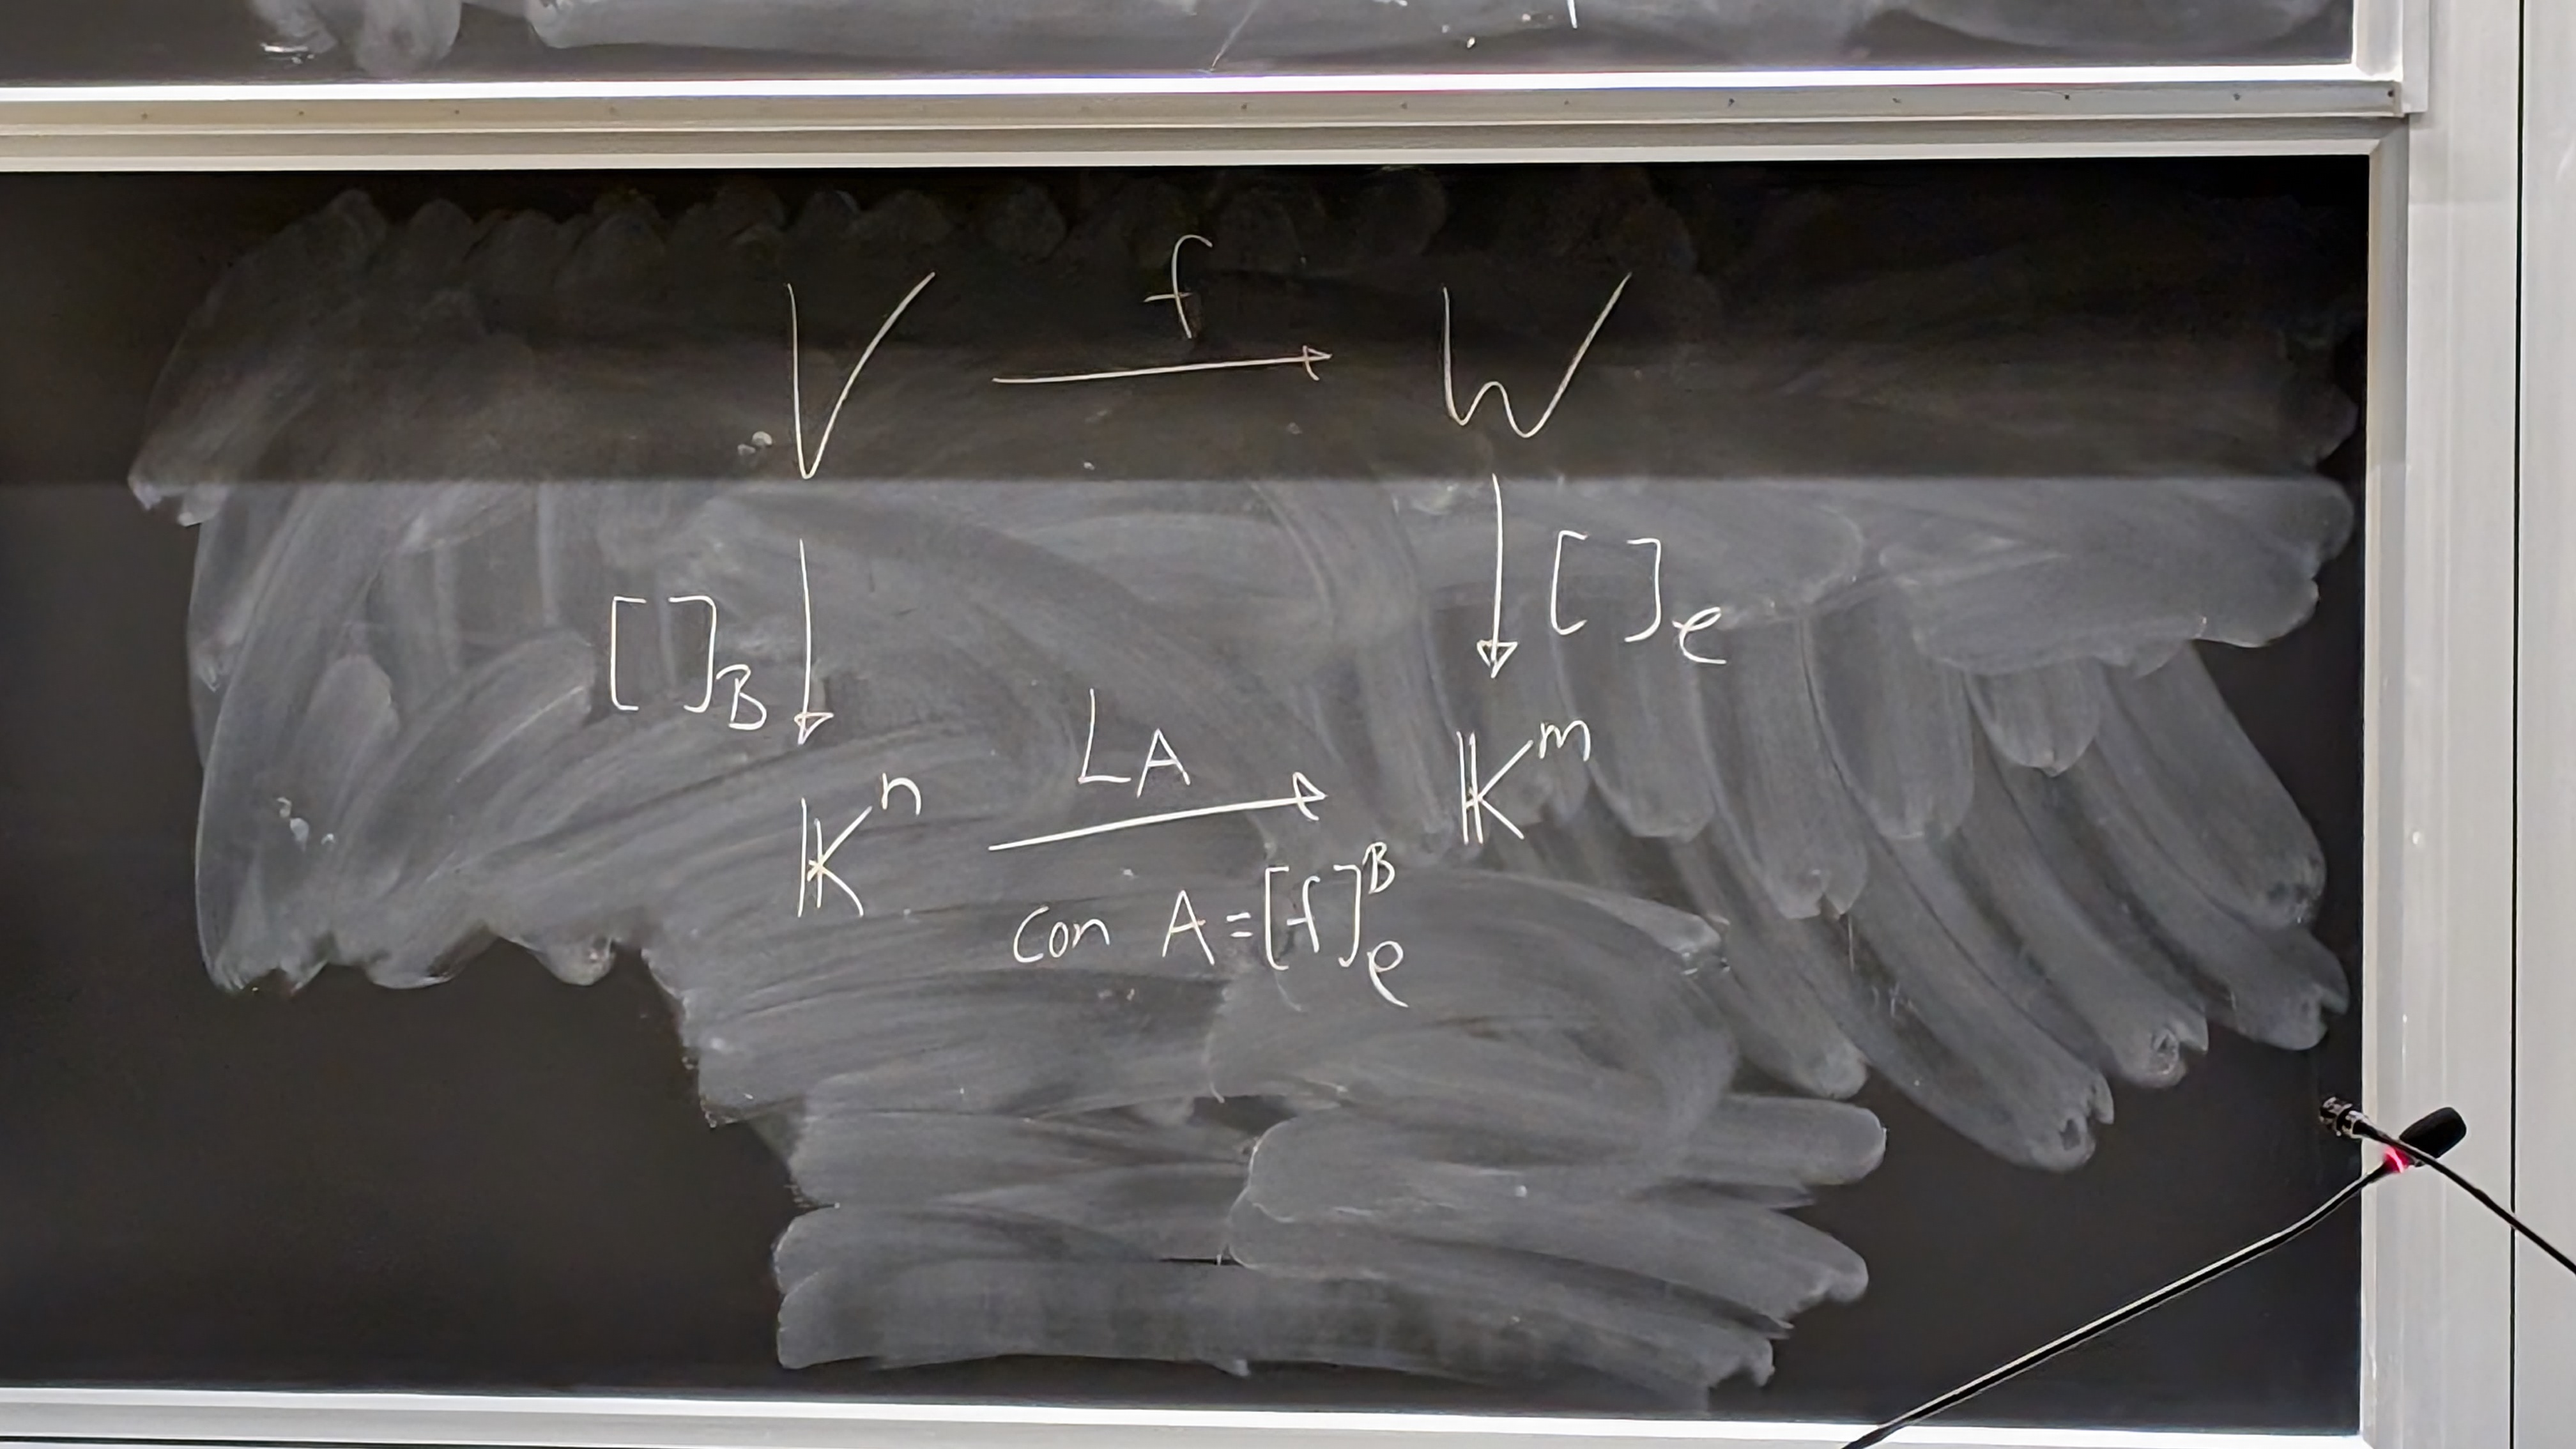 V f W
[ ]_B [ ]_e
𝕂^n L_A 𝕂^m
con A = [f]^B_e